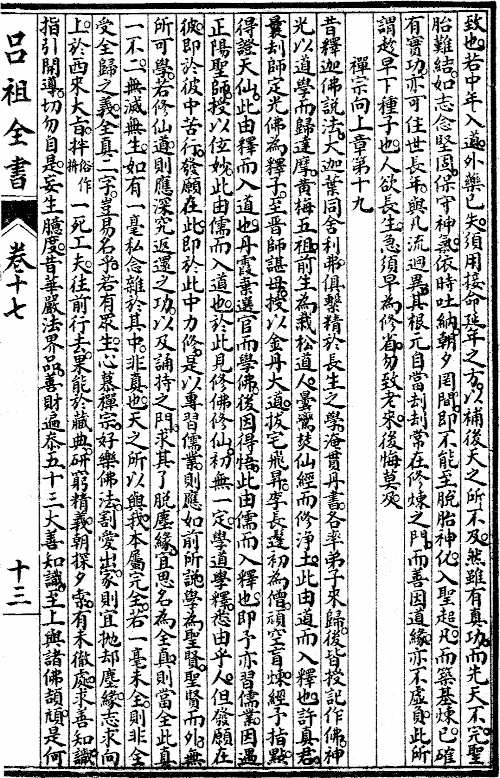 致也若中年入道外藥已失須用接命延年之方以補後天之所不及然雖有真功而先天不完聖
胎難結如志念堅固保守神氣依時吐納朝夕罔間即不能至脫胎神化入聖超凡而築基煉已確
有實功亦可住世長年與凡流迥異其根元自當刦刦常在修煉之門而善因道緣亦不虛負此所
謂趁早下種子也人欲長生急須早為修省勿致老來後悔莫及
禪宗向上章第十九
昔釋迦佛說法大迦葉同舍利弗俱繫精於長生之學淹貫丹書各率弟子來歸後皆授記作佛神
光以道學而歸達摩黃梅五祖前生為栽松道人曇鸞焚仙經而修淨土此由道而入釋也許真君
曩刦師定光佛為釋子至晉師諶母授以金丹大道拔宅飛昇李長
初為僧頑空盲煉經予指點
得證天仙此由釋而入道也丹霞棄選官而學佛後因得悟此由儒而入釋也即予亦習儒業因遇
正陽聖師授以位妙此由儒而入道也於此見修佛修仙初無一定學道學釋悉由乎人但發願在
彼即於彼中苦行發願在此即於此中力修是以專習儒業則應如前所說學為聖賢聖賢而外無
所可學若修仙道則應深究返還之功以及誦持之門求其了脫塵緣宜思名為全真則當全此真
一不二無減無生如有一毫私念雜於其中非真也天之所以與我本屬完全若一毫未全則非全
受全歸之義全真二字豈易名乎若有眾生心慕禪宗好樂佛法割愛出家則宜拋却塵緣志求向
上於西來大旨拌俗作拚一死工夫往前行去果能於藏典研窮精義朝探夕索有未徹處求善知識
指引開導切勿自是妄生臆度昔華嚴法界品善財遍參五十三大善知識至上與諸佛頡頏是何
呂祖全書
卷十七
十三